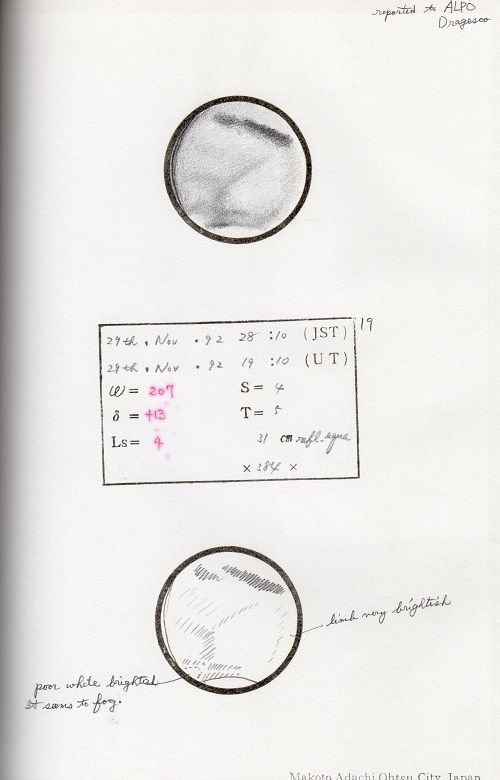 reported to ALPO
Dragesco
19
29th , Nov . 92 28 :10 (JST)
29th , Nov . 92 19 :10 (UT)
ω= 207 S= 4
δ =+13 T= 5
Ls= 4 31 cm refl-equa
× 384 ×
limb very brightish
poor white brightish
It seems to fog.
Makoto Adachi Ohtsu City, Japan